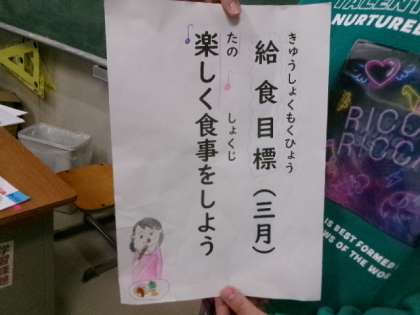 きゅうしょくもくひょう
給食目標(三月)
たの しょくじ
楽しく食事をしよう
TALENT
NURTURED
RICC
RICC
IS BEST FORMED
OF THE WO